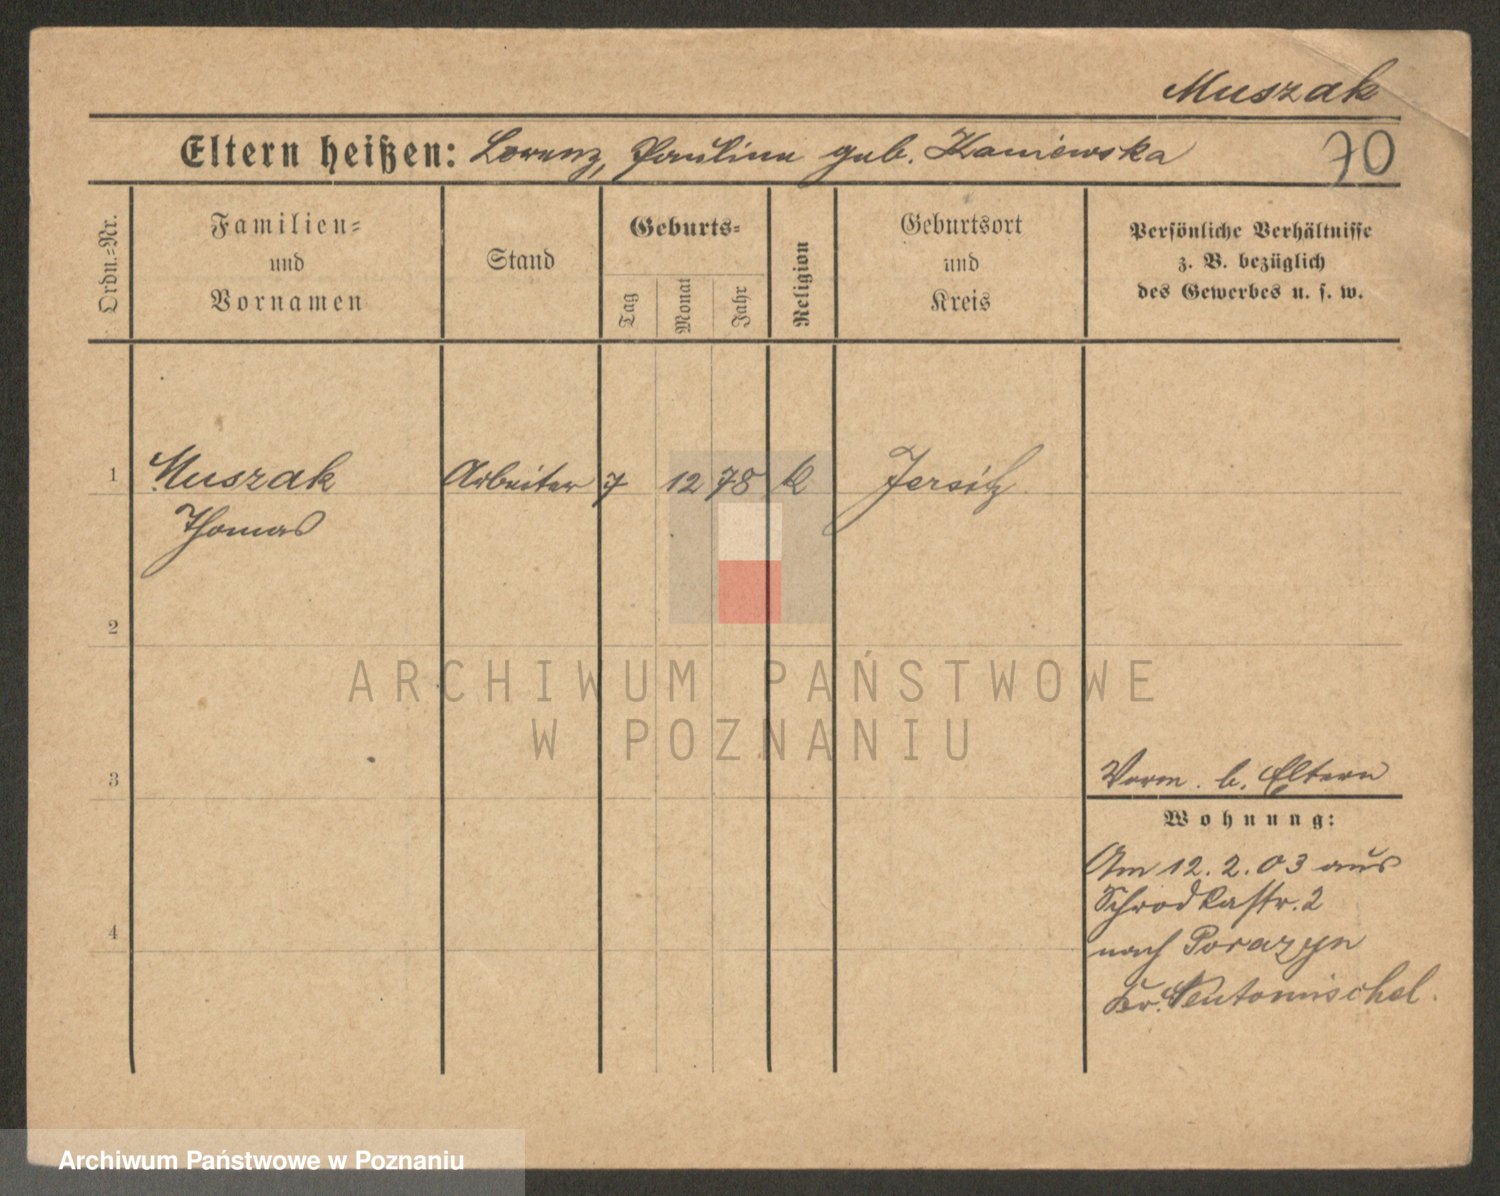 Muszak
Eltern heißen: Lorenz, Paulina geb. Kaniewska
70
Ordn.-Nr.
Familien-
und
Vornamen
Stand
Geburts-
Tag
Monat
Jahr
Religion
Geburtsort
und
Kreis
Persönliche Verhältnisse
z. B. bezüglich
des Gewerbes u. s. w.
1 Muszak Arbeiter 7 12 78 k Jersitz
Thomas
2
ARCHIWUM PAŃSTWOWE
W POZNANIU
3
Vorm. b. Eltern
Wohnung:
Am 12.2.03 aus
Schrodkastr. 2
4
nach Porazyn
Kr. Neutomischel.
Archiwum Państwowe w Poznaniu